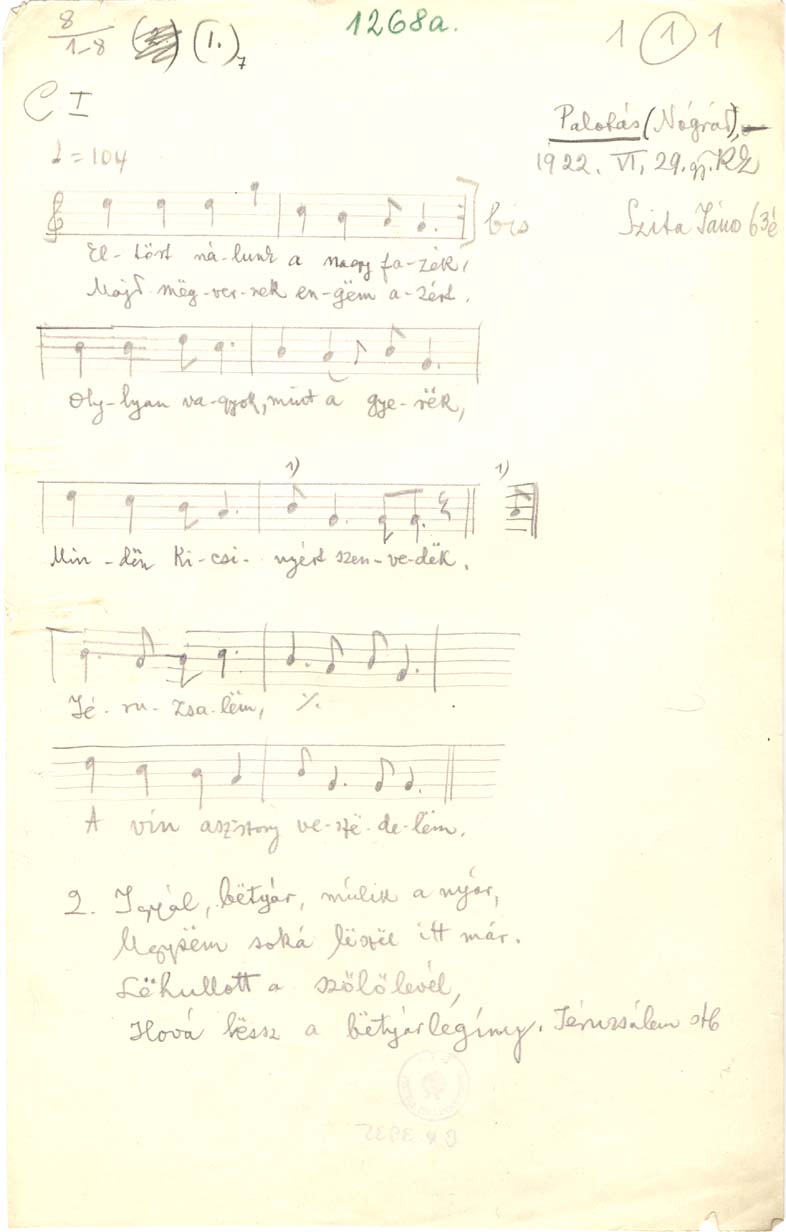 8/1-8 (2.) (1.)7 1268a. 1 1 1
C I
Palotás (Nógrád),
♩ = 104 1922. VI. 29. gy. KZ
bis Szita János 63é
El- tört ná-lunk a nagy fa-zék,
Majd mëg-ver-nek en-gëm a-zért.
Oly-lyan va-gyok, mint a gye-rëk,
1) 1)
Min-dën ki-csi-nyért szen-ve-dëk.
Jé-ru-zsa-lëm, ٪
A vín asztony ve-sze-de-lëm.
2. Igyál, bëtyár, múlik a nyár,
Ugysëm soká lëszël itt már.
Lëhullott a szőlőlevél,
Hová lëssz a bëtyárlegíny. Jéruzsálem stb